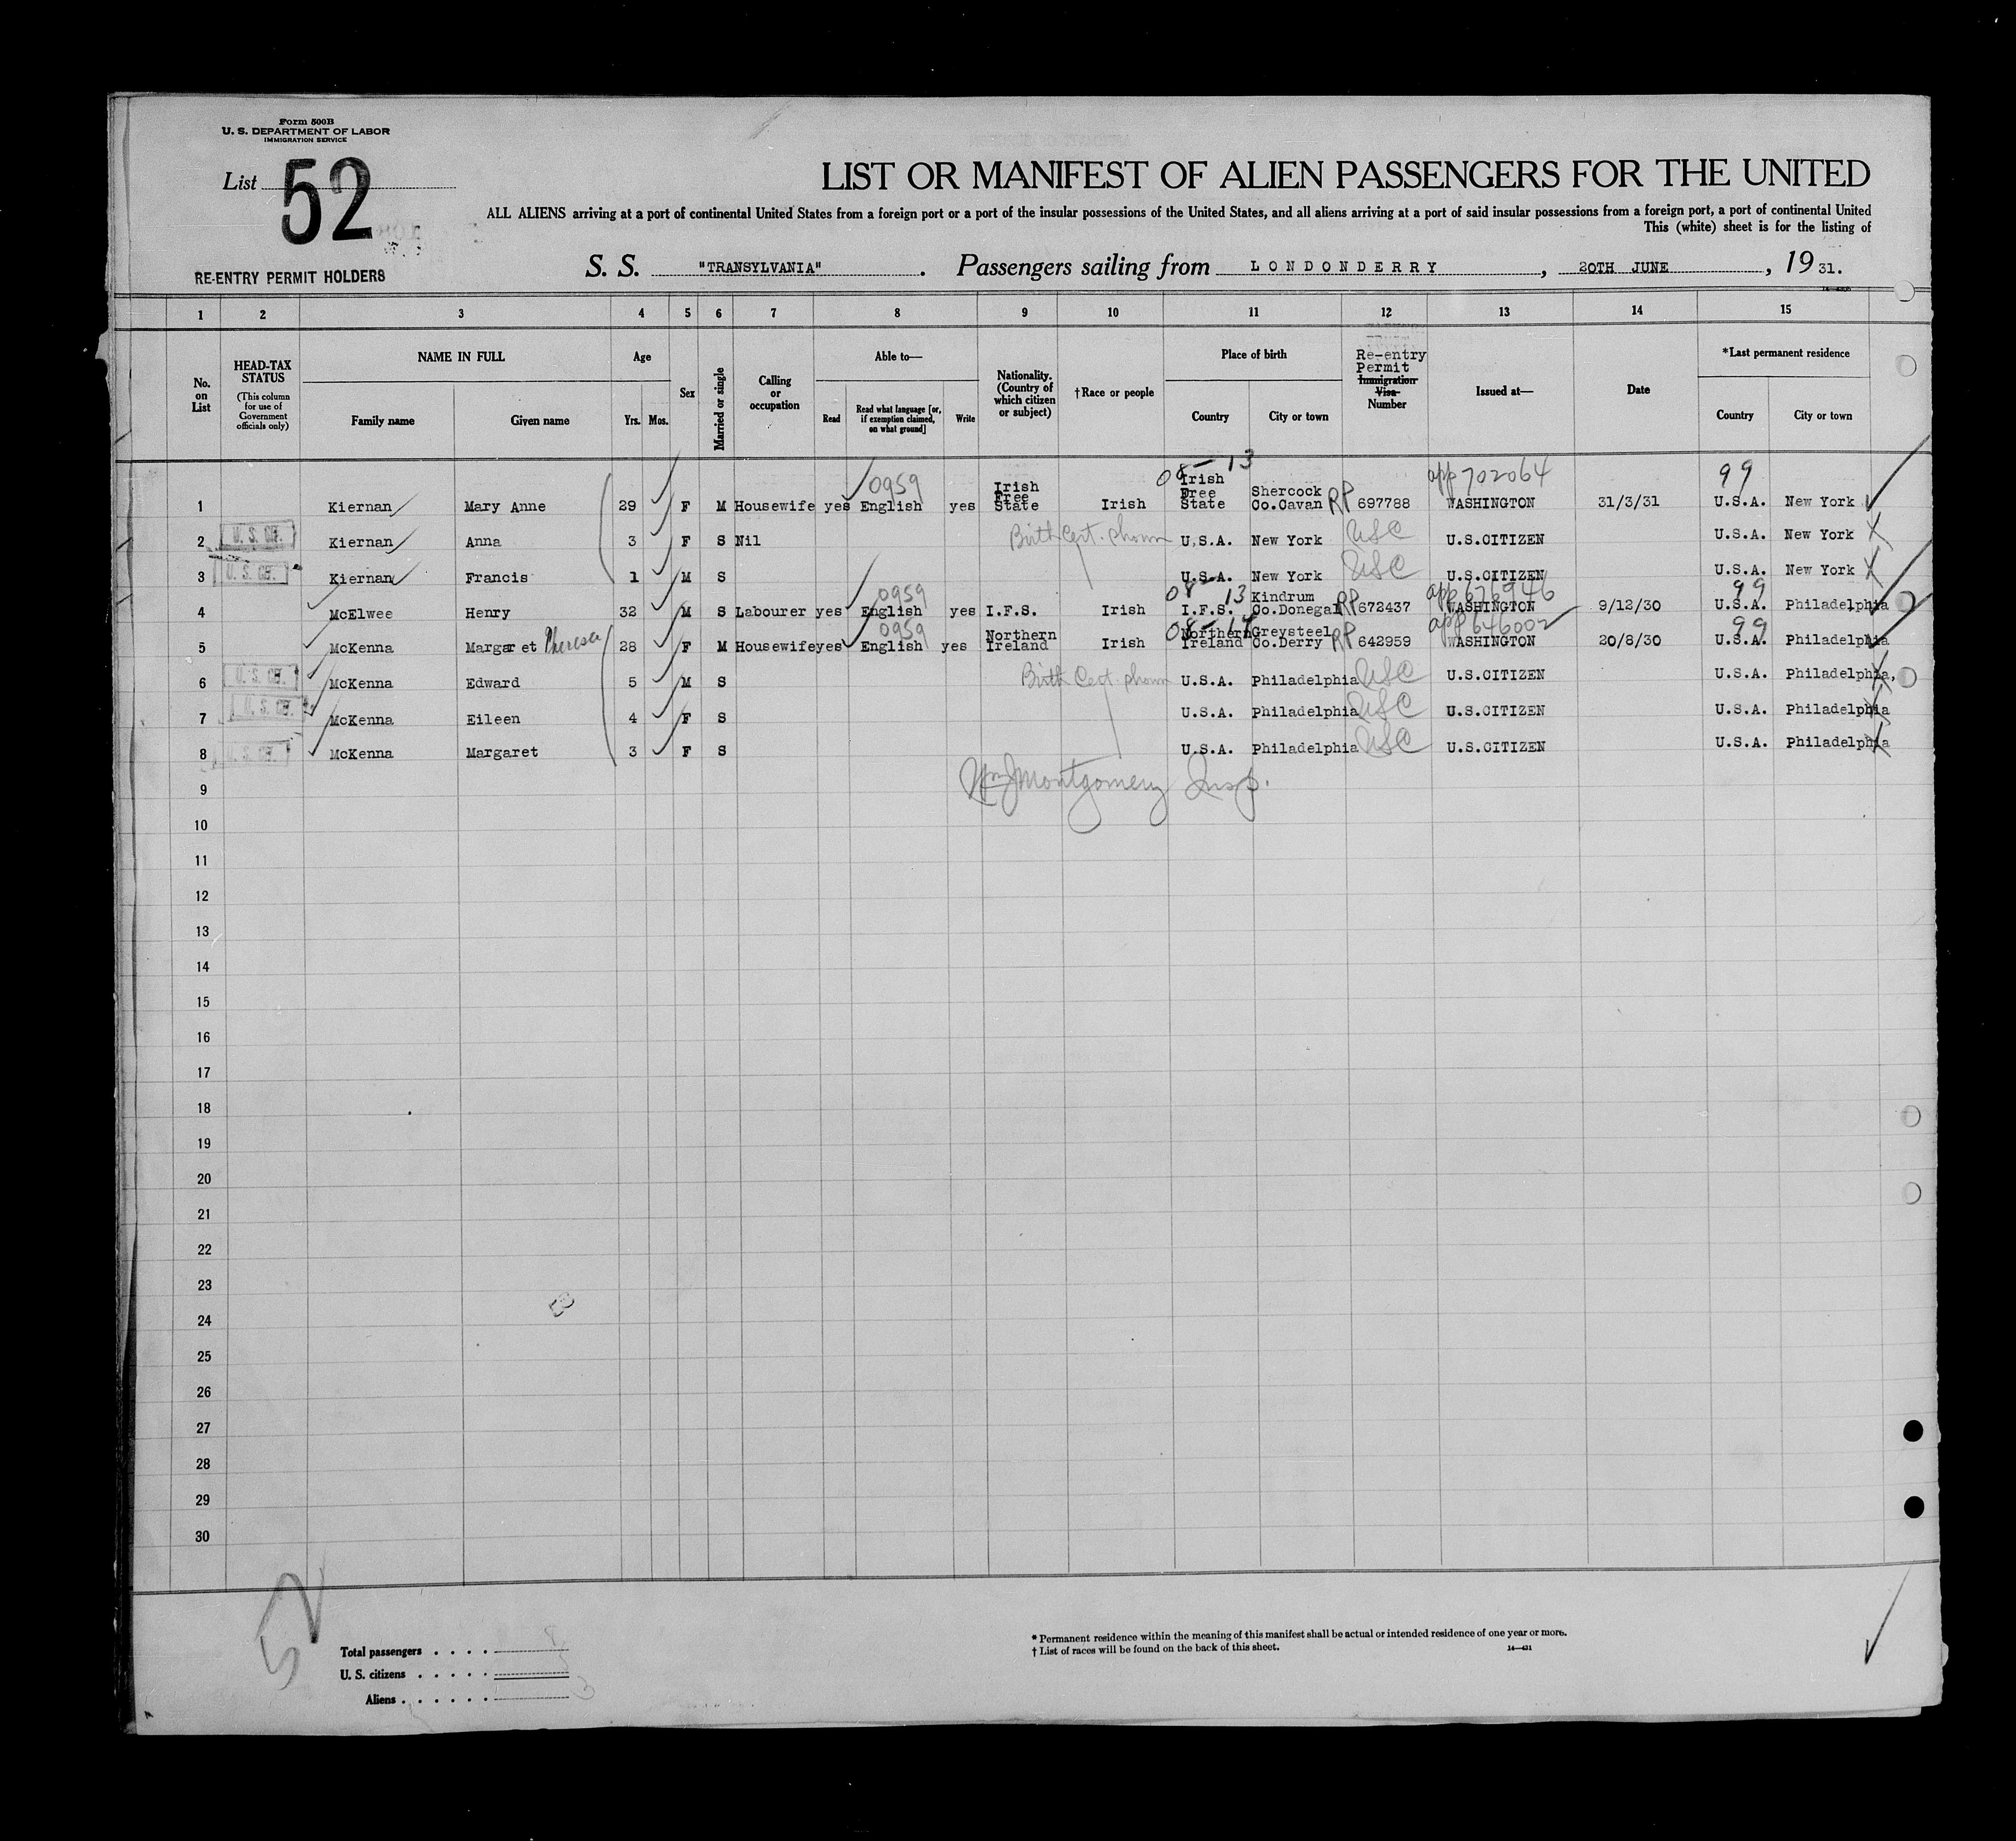 Form 500B
U. S. DEPARTMENT OF LABOR
IMMIGRATION SERVICE
List 52
LIST OR MANIFEST OF ALIEN PASSENGERS FOR THE UNITED
ALL ALIENS arriving at a port of continental United States from a foreign port or a port of the insular possessions of the United States, and all aliens arriving at a port of said insular possessions from a foreign port, a port of continental United
This (white) sheet is for the listing of
RE-ENTRY PERMIT HOLDERS
S. S. "TRANSYLVANIA" . Passengers sailing from LONDONDERRY , 20TH JUNE , 19 31.
1 2 3 4 5 6 7 8 9 10 11 12 13 14 15
No. on List
HEAD-TAX STATUS (This column for use of Government officials only)
NAME IN FULL Family name Given name
Age Yrs. Mos.
Sex
Married or single
Calling or occupation
Able to— Read Read what language [or, if exemption claimed, on what ground] Write
Nationality. (Country of which citizen or subject)
†Race or people
Place of birth Country City or town
Re-entry Permit Immigration Visa Number
Issued at—
Date
*Last permanent residence Country City or town
08-13 app 702064 99
1 Kiernan Mary Anne 29 F M Housewife yes 0959 English yes Irish Free State Irish Irish Free State Shercock Co.Cavan RP 697788 WASHINGTON 31/3/31 U.S.A. New York
2 U. S. CIT. Kiernan Anna 3 F S Nil Birth Cert. shown U.S.A. New York USC U.S.CITIZEN U.S.A. New York
3 U. S. CIT. Kiernan Francis 1 M S U.S.A. New York USC U.S.CITIZEN U.S.A. New York
08-13 99
4 McElwee Henry 32 M S Labourer yes 0959 English yes I.F.S. Irish I.F.S. Kindrum Co.Donegal RP 672437 WASHINGTON 9/12/30 U.S.A. Philadelphia
app 646002 99
5 McKenna Margaret Theresa 28 F M Housewife yes 0959 English yes Northern Ireland Irish Northern Ireland Greysteel Co.Derry RP 642959 WASHINGTON 20/8/30 U.S.A. Philadelphia
6 U. S. CIT. McKenna Edward 5 M S Birth Cert. shown U.S.A. Philadelphia USC U.S.CITIZEN U.S.A. Philadelphia,
7 U. S. CIT. McKenna Eileen 4 F S U.S.A. Philadelphia USC U.S.CITIZEN U.S.A. Philadelphia
8 U. S. CIT. McKenna Margaret 3 F S U.S.A. Philadelphia USC U.S.CITIZEN U.S.A. Philadelphia
9 Wm J Montgomery Insp.
10
11
12
13
14
15
16
17
18
19
20
21
22
23
24
25
26
27
28
29
30
52
Total passengers . . . . 8
U. S. citizens . . . . . 5
Aliens . . . . . . 3
* Permanent residence within the meaning of this manifest shall be actual or intended residence of one year or more.
† List of races will be found on the back of this sheet.